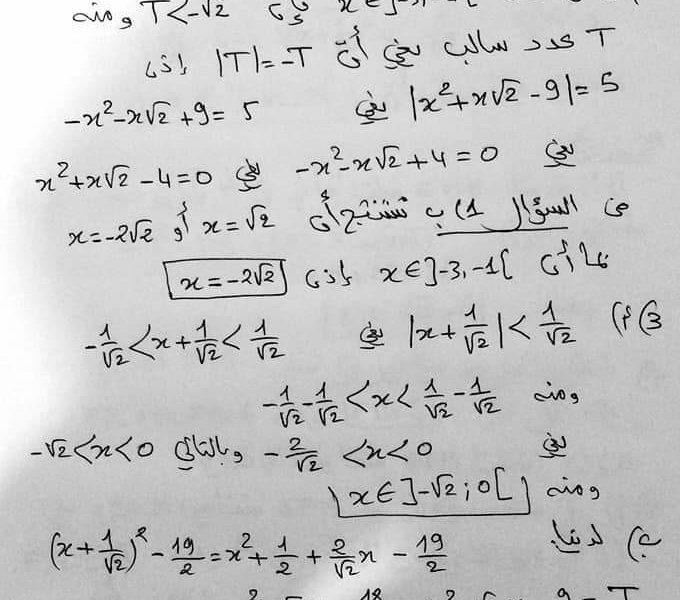 T<-√2 ومنه
T عدد سالب يعني أن |T|=-T إذن
|x²+x√2-9|=5 يعني -x²-x√2+9=5
يعني -x²-x√2+4=0 يعني x²+x√2-4=0
من السؤال 1) ب نستنتج أن x=√2 أو x=-2√2
بما أن x∈]-3,-1[ إذن x=-2√2
3) أ) |x+1/√2|<1/√2 يعني -1/√2<x+1/√2<1/√2
ومنه -1/√2-1/√2<x<1/√2-1/√2
يعني -2/√2<x<0 وبالتالي -√2<x<0
ومنه x∈]-√2;0[
لدينا (x+1/√2)²-19/2=x²+1/2+2/√2x-19/2